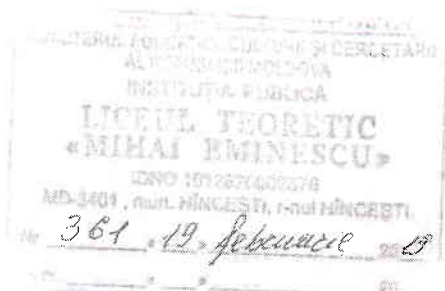 MINISTERUL EDUCAȚIEI, CULTURII ȘI CERCETĂRII
AL REPUBLICII MOLDOVA
INSTITUȚIA PUBLICĂ
LICEUL TEORETIC
«MIHAI EMINESCU»
IDNO
MD-3401, mun. HÎNCEȘTI, r-nul HÎNCEȘTI
Nr. 361 " 19 " februarie 20